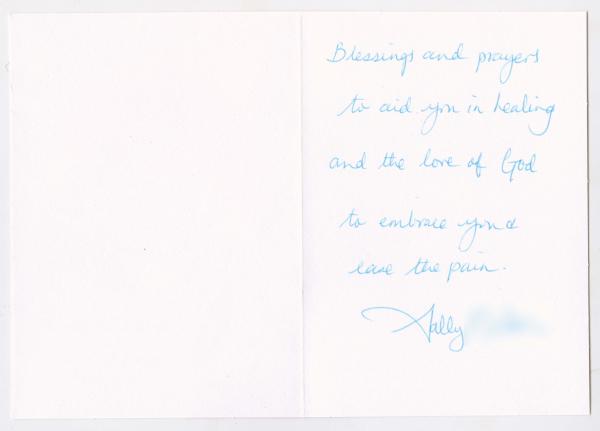 Blessings and prayers
to aid you in healing
and the love of God
to embrace you &
ease the pain.
Sally